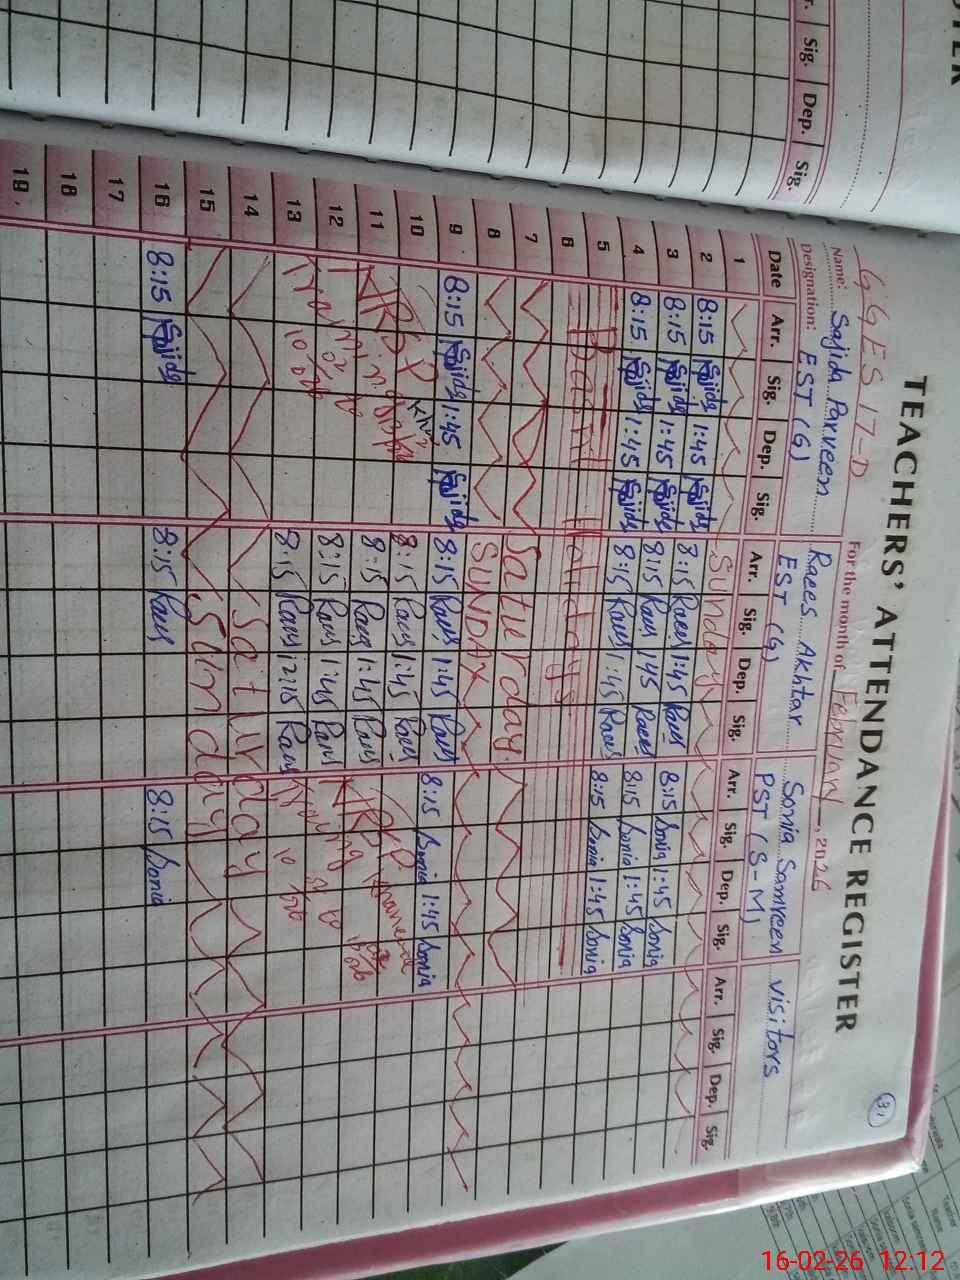 TEACHERS' ATTENDANCE REGISTER
31
GGES 17-D For the month of February, 2026
Name: Sajida Parveen Raees Akhtar Sonia Samreen visitors
Designation: EST (G) EST (G) PST (S-M)
Date Arr. Sig. Dep. Sig. Arr. Sig. Dep. Sig. Arr. Sig. Dep. Sig. Arr. Sig. Dep. Sig.
1 Sunday
2 8:15 Sajida 1:45 Sajida 8:15 Raees 1:45 Raees 8:15 Sonia 1:45 Sonia
3 8:15 Sajida 1:45 Sajida 8:15 Raees 1:45 Raees 8:15 Sonia 1:45 Sonia
4 8:15 Sajida 1:45 Sajida 8:15 Raees 1:45 Raees 8:15 Sonia 1:45 Sonia
5 Basant Holidays
6
7 Saturday
8 SUNDAY
9 8:15 Sajida 1:45 Sajida 8:15 Raees 1:45 Raees 8:15 Sonia 1:45 Sonia
10 8:15 Raees 1:45 Raees
11 8:15 Raees 1:45 Raees
12 8:15 Raees 1:45 Raees
13 8:15 Raees 12:15 Raees
14 Saturday
15 Sunday
16 8:15 Sajida 8:15 Raees 8:15 Sonia
17
18
19
Sig. Dep. Sig.
16-02-26 12:12